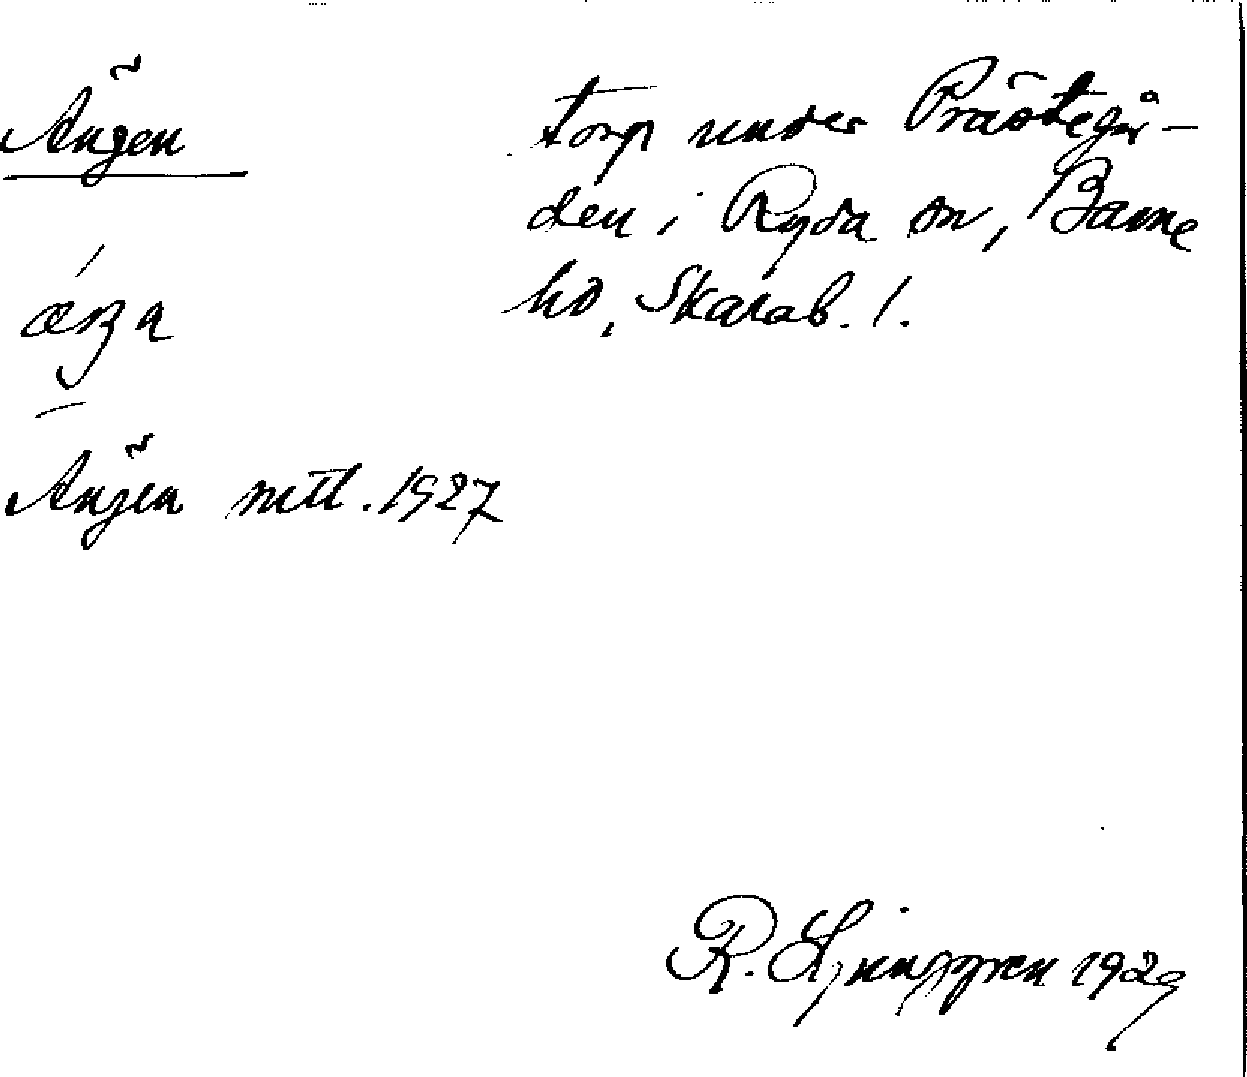 Ängen
torp under Prästegår-
den i Ryda sn, Barne
hd, Skarab. l.
Ängen mtl. 1927
R. Ljunggren 1929